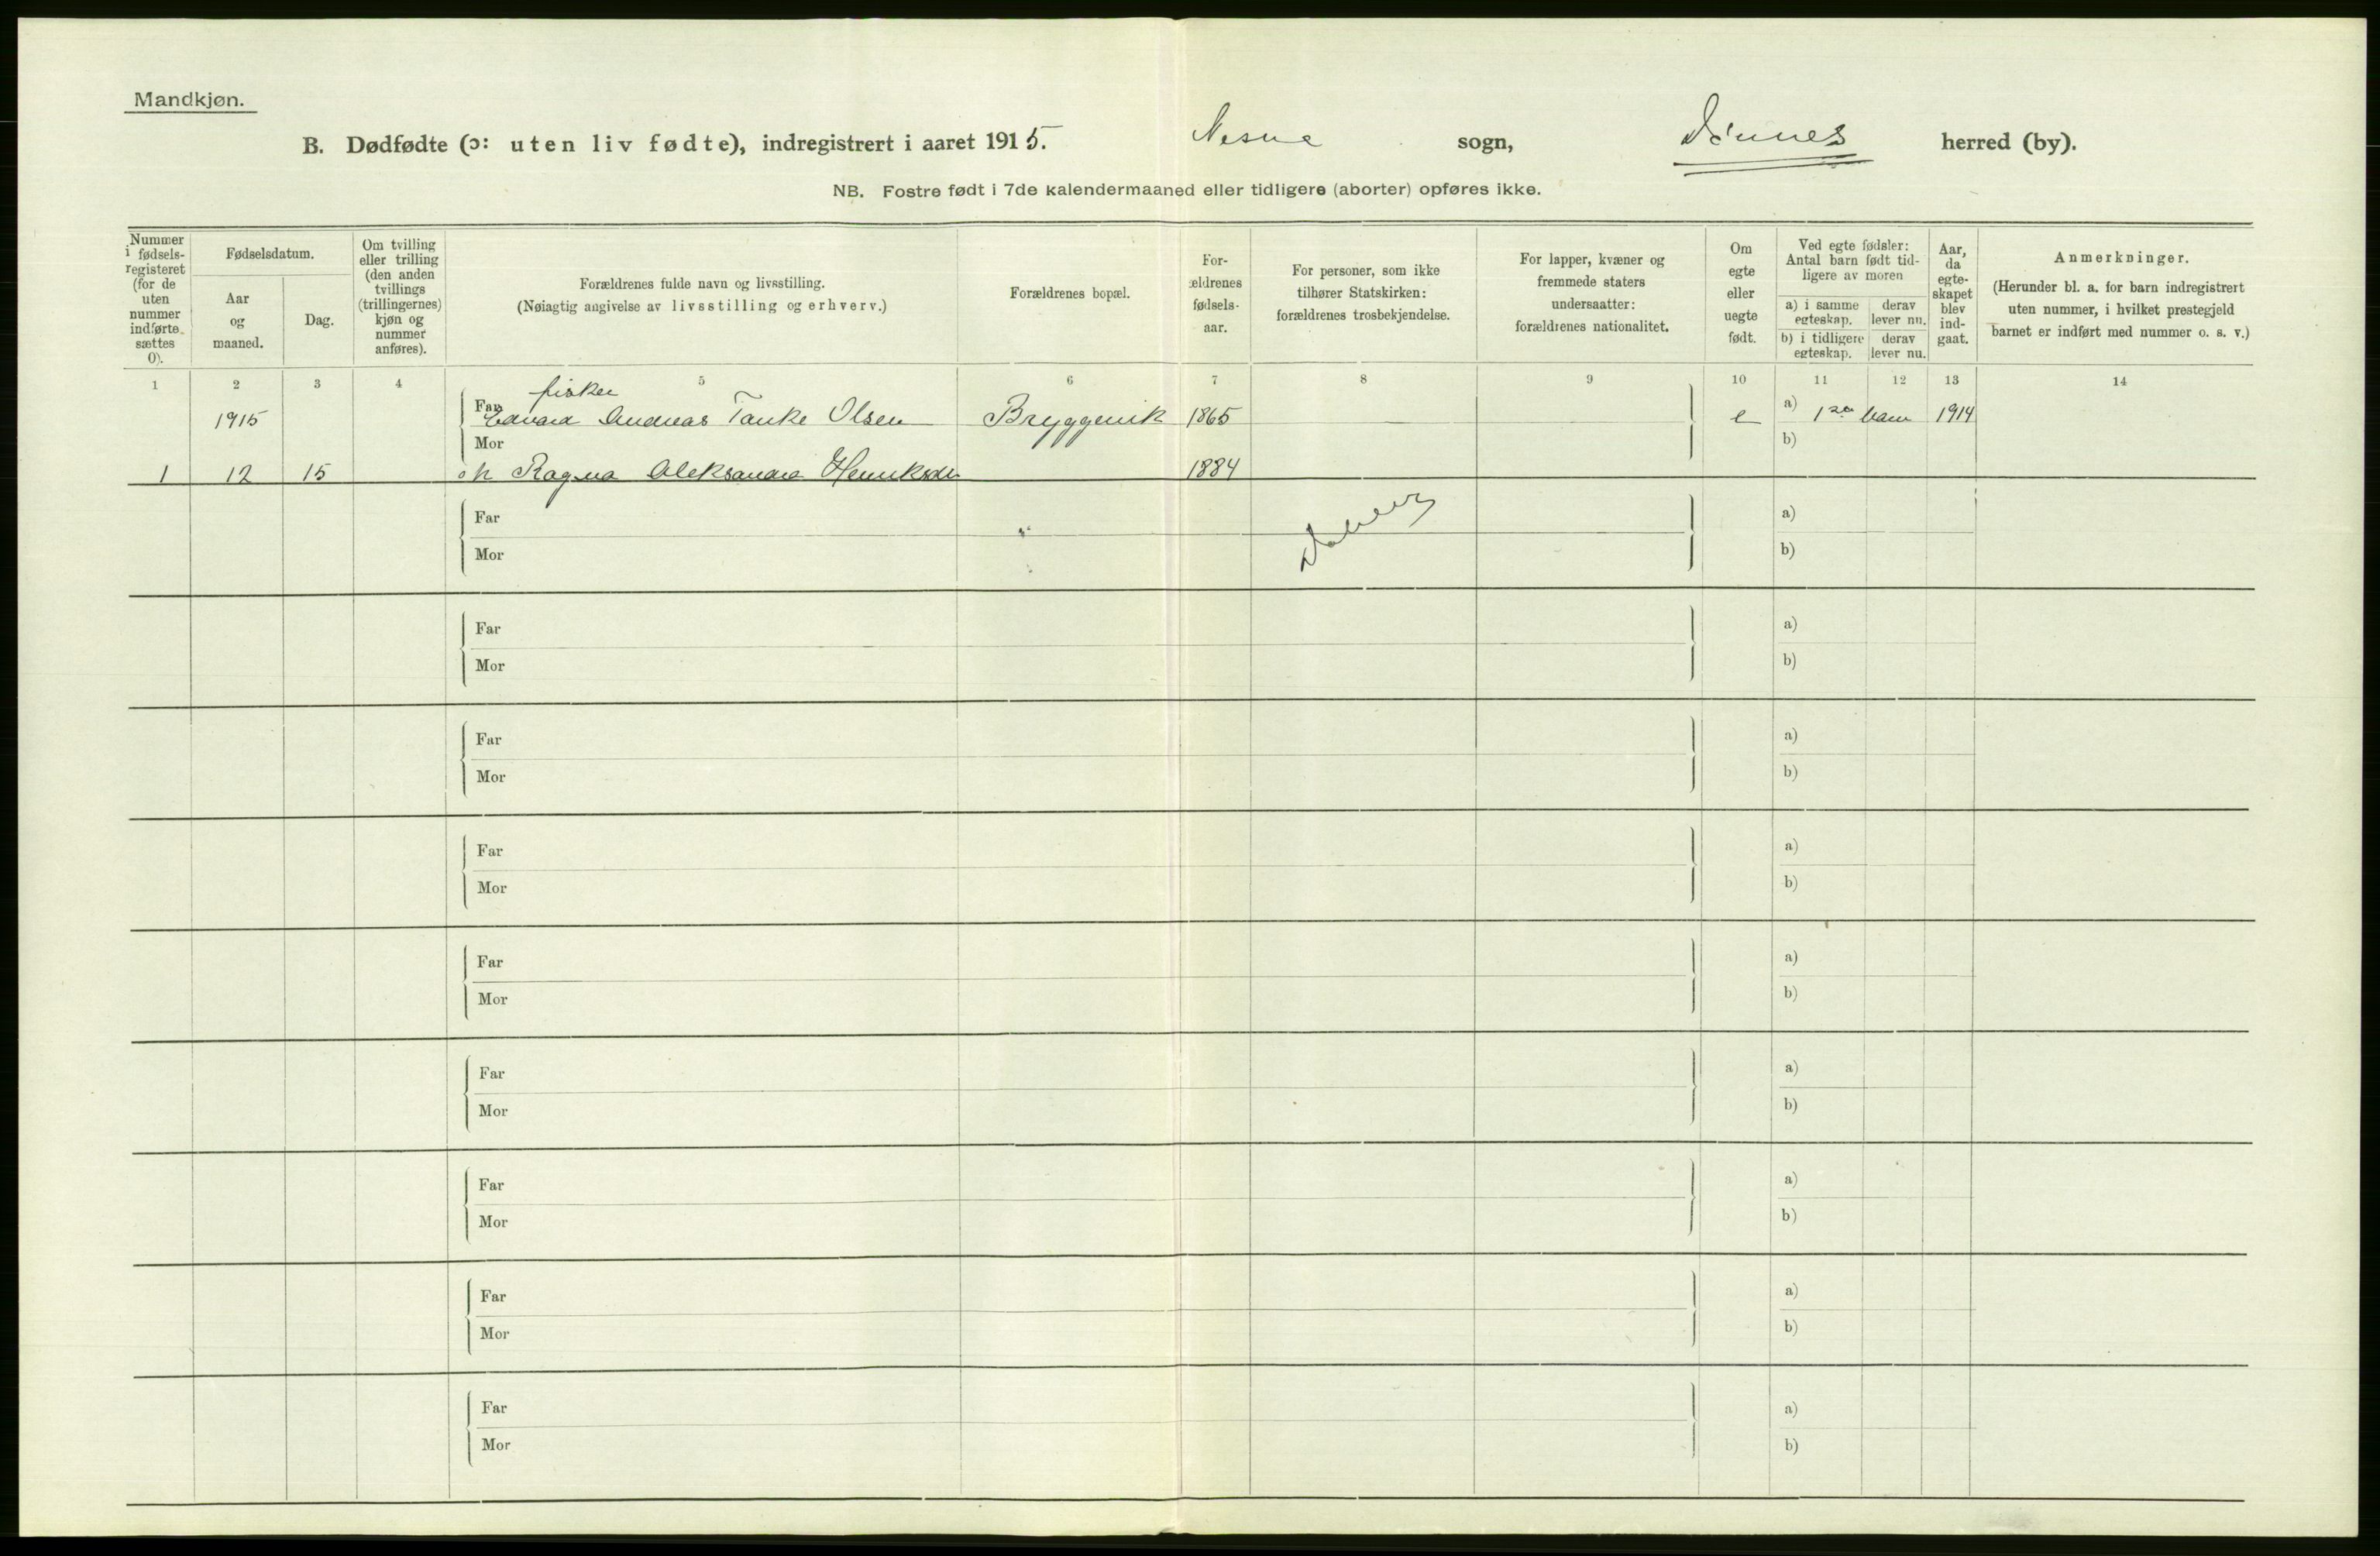 Mandkjøn.
B. Dødfødte (ɔ: uten liv fødte), indregistrert i aaret 1915. Nesna sogn, Dønnes herred (by).
NB. Fostre født i 7de kalendermaaned eller tidligere (aborter) opføres ikke.
Nummer
i fødsels-
registeret
(for de
uten
nummer
indførte
sættes
0).
Fødselsdatum.
Aar
og
maaned.
Dag.
Om tvilling
eller trilling
(den anden
tvillings
(trillingernes)
kjøn og
nummer
anføres).
Forældrenes fulde navn og livsstilling.
(Nøiagtig angivelse av livsstilling og erhverv.)
Forældrenes bopæl.
For-
ældrenes
fødsels-
aar.
For personer, som ikke
tilhører Statskirken:
forældrenes trosbekjendelse.
For lapper, kvæner og
fremmede staters
undersaatter:
forældrenes nationalitet.
Om
egte
eller
uegte
født.
Ved egte fødsler:
Antal barn født tid-
ligere av moren
a) i samme
egteskap.
derav
lever nu.
b) i tidligere
egteskap.
derav
lever nu.
Aar,
da
egte-
skapet
blev
ind-
gaat.
Anmerkninger.
(Herunder bl. a. for barn indregistrert
uten nummer, i hvilket prestegjeld
barnet er indført med nummer o. s. v.)
1 2 3 4 5 6 7 8 9 10 11 12 13 14
fisker
1915 Far Edvard Andreas Tanke Olsen Bryggevik 1865 e a) 1ste barn 1914
Mor b)
1 12 15 Ragna Aleksandra Henriksdr 1884
Far a)
Mor b)
Far a)
Mor b)
Far a)
Mor b)
Far a)
Mor b)
Far a)
Mor b)
Far a)
Mor b)
Far a)
Mor b)
Far a)
Mor b)
Far a)
Mor b)